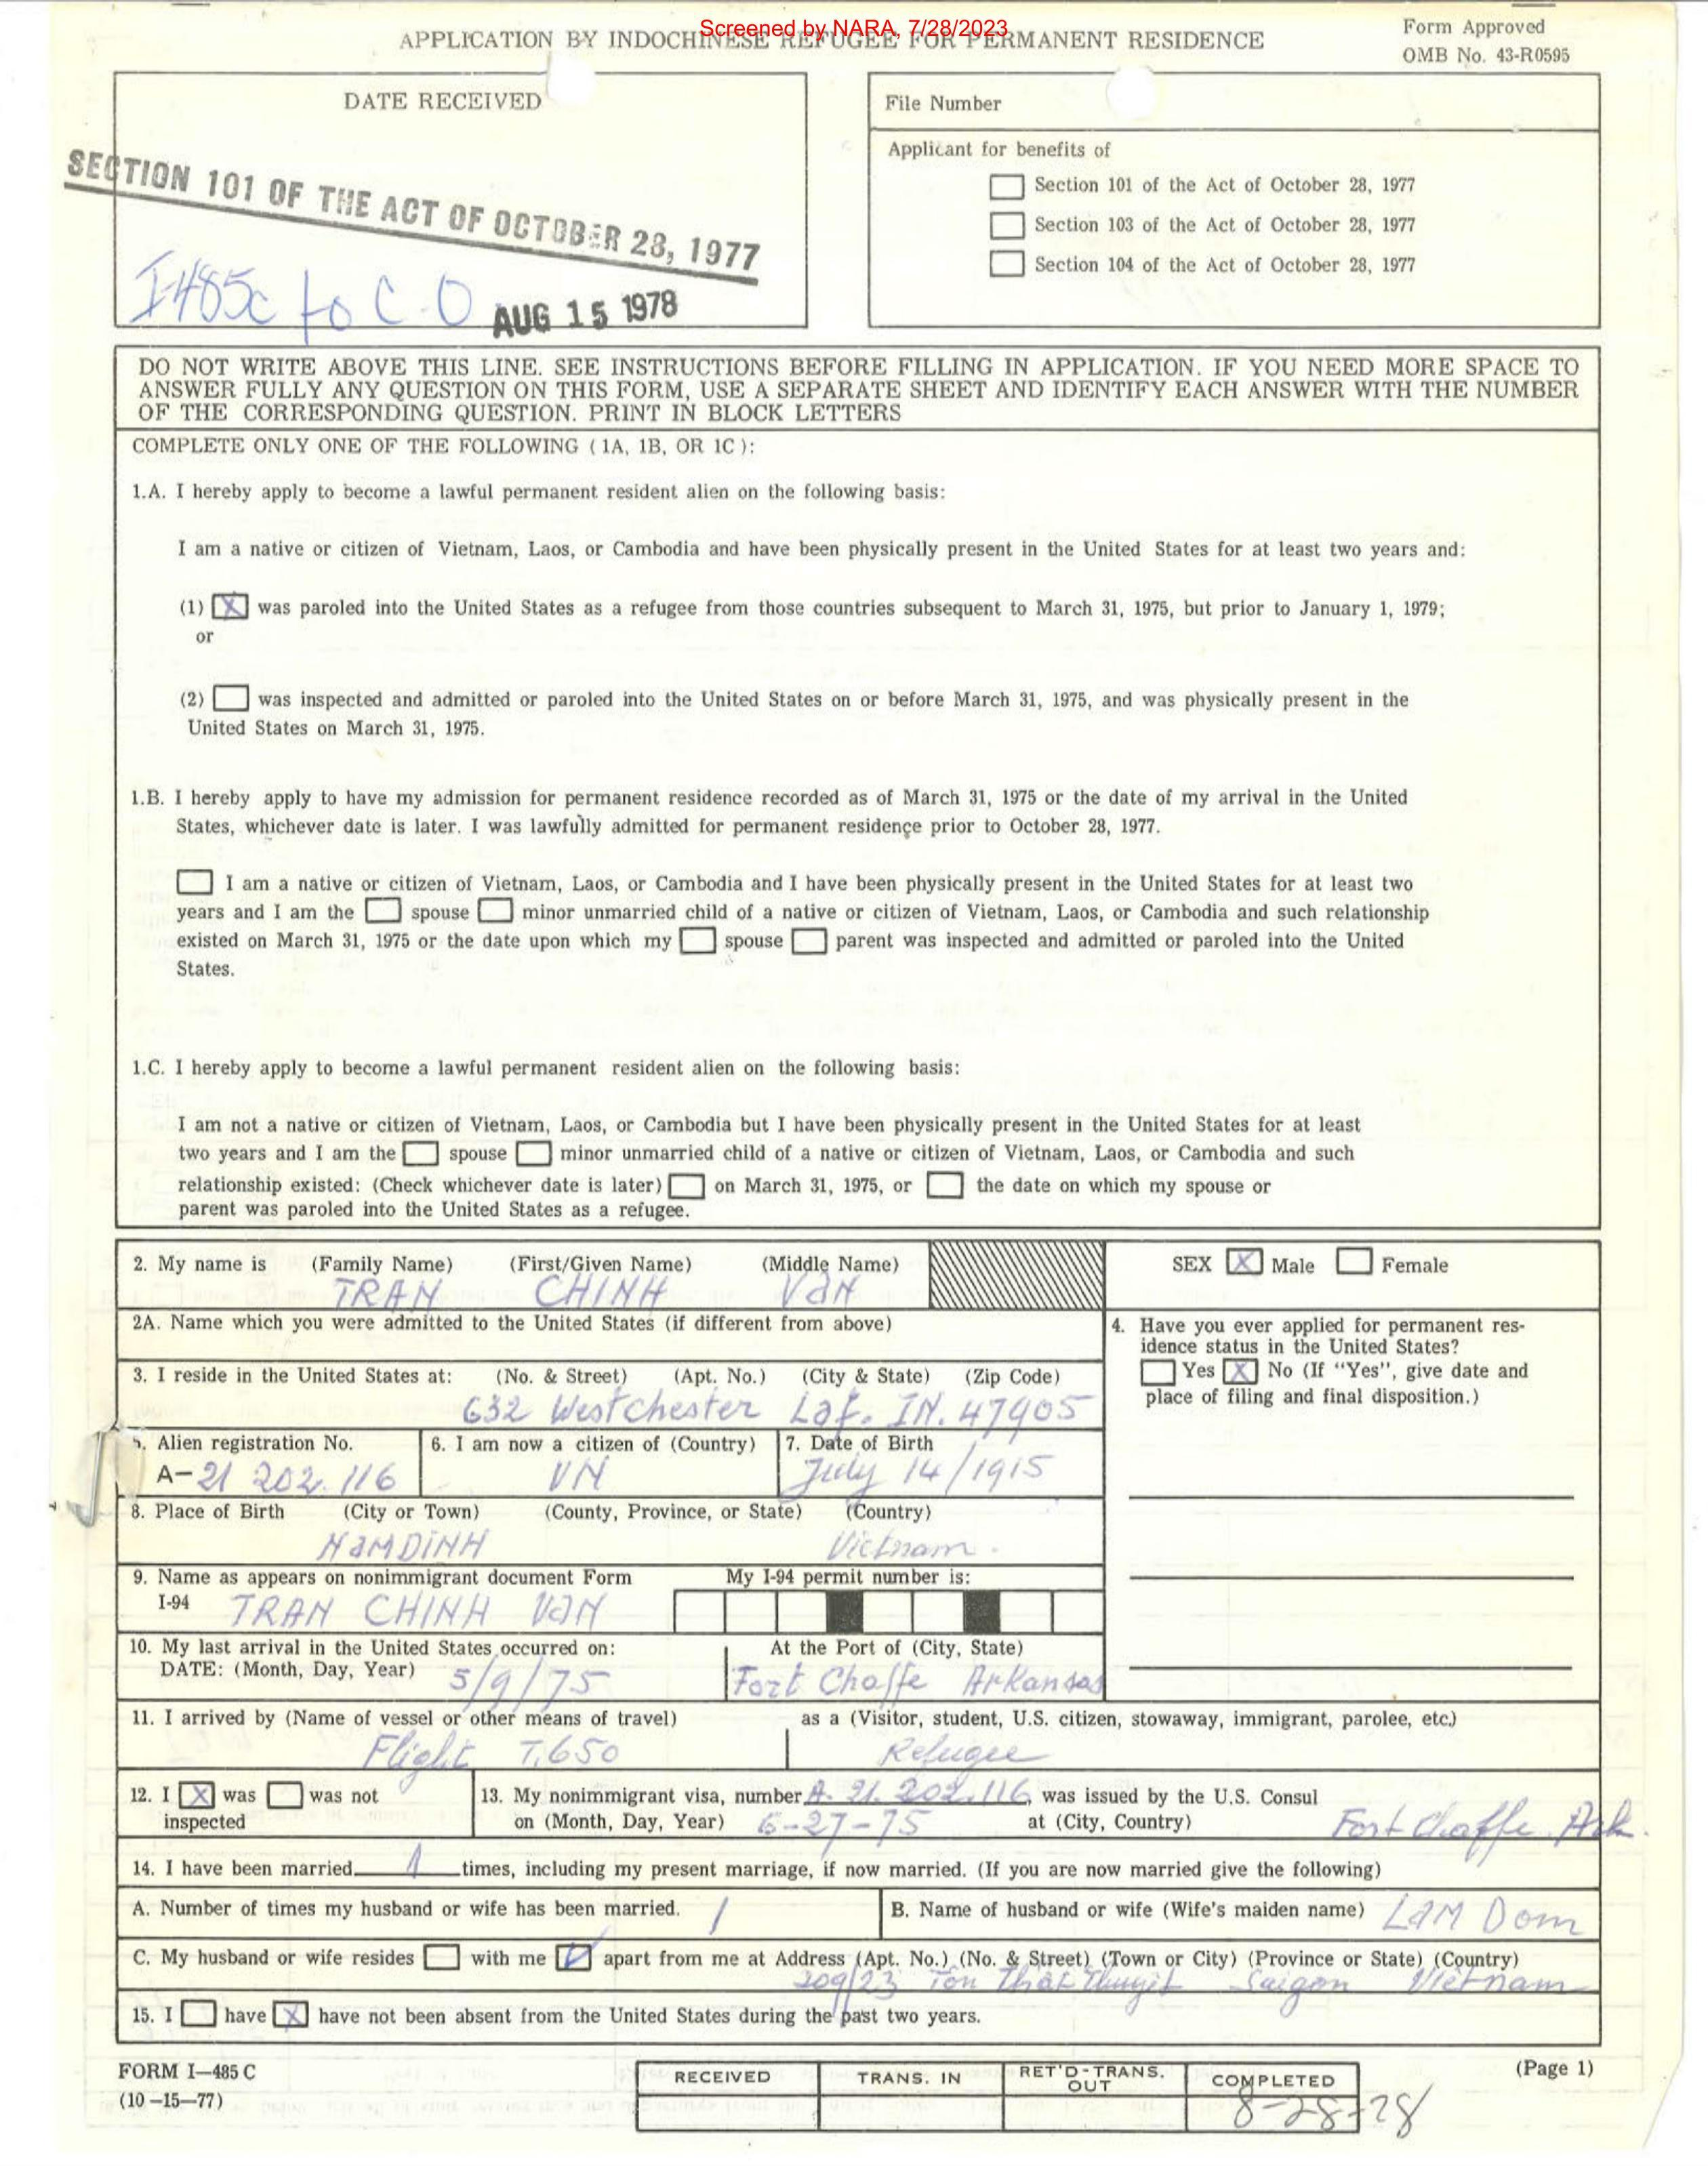 Screened by NARA, 7/28/2023
APPLICATION BY INDOCHINESE REFUGEE FOR PERMANENT RESIDENCE
Form Approved
OMB No. 43-R0595
DATE RECEIVED
SECTION 101 OF THE ACT OF OCTOBER 28, 1977
I-485c to C.O
AUG 15 1978
File Number
Applicant for benefits of
Section 101 of the Act of October 28, 1977
Section 103 of the Act of October 28, 1977
Section 104 of the Act of October 28, 1977
DO NOT WRITE ABOVE THIS LINE. SEE INSTRUCTIONS BEFORE FILLING IN APPLICATION. IF YOU NEED MORE SPACE TO
ANSWER FULLY ANY QUESTION ON THIS FORM, USE A SEPARATE SHEET AND IDENTIFY EACH ANSWER WITH THE NUMBER
OF THE CORRESPONDING QUESTION. PRINT IN BLOCK LETTERS
COMPLETE ONLY ONE OF THE FOLLOWING (1A, 1B, OR 1C):
1.A. I hereby apply to become a lawful permanent resident alien on the following basis:
I am a native or citizen of Vietnam, Laos, or Cambodia and have been physically present in the United States for at least two years and:
(1) X was paroled into the United States as a refugee from those countries subsequent to March 31, 1975, but prior to January 1, 1979;
or
(2) was inspected and admitted or paroled into the United States on or before March 31, 1975, and was physically present in the
United States on March 31, 1975.
1.B. I hereby apply to have my admission for permanent residence recorded as of March 31, 1975 or the date of my arrival in the United
States, whichever date is later. I was lawfully admitted for permanent residence prior to October 28, 1977.
I am a native or citizen of Vietnam, Laos, or Cambodia and I have been physically present in the United States for at least two
years and I am the spouse minor unmarried child of a native or citizen of Vietnam, Laos, or Cambodia and such relationship
existed on March 31, 1975 or the date upon which my spouse parent was inspected and admitted or paroled into the United
States.
1.C. I hereby apply to become a lawful permanent resident alien on the following basis:
I am not a native or citizen of Vietnam, Laos, or Cambodia but I have been physically present in the United States for at least
two years and I am the spouse minor unmarried child of a native or citizen of Vietnam, Laos, or Cambodia and such
relationship existed: (Check whichever date is later) on March 31, 1975, or the date on which my spouse or
parent was paroled into the United States as a refugee.
2. My name is (Family Name) (First/Given Name) (Middle Name)
TRAN CHINH VaN
SEX X Male Female
2A. Name which you were admitted to the United States (if different from above)
3. I reside in the United States at: (No. & Street) (Apt. No.) (City & State) (Zip Code)
632 Westchester Laf. IN. 47905
4. Have you ever applied for permanent res-
idence status in the United States?
Yes X No (If "Yes", give date and
place of filing and final disposition.)
5. Alien registration No.
A-21 202.116
6. I am now a citizen of (Country)
VN
7. Date of Birth
July 14/1915
8. Place of Birth (City or Town) (County, Province, or State) (Country)
NaMDiNH Vietnam.
9. Name as appears on nonimmigrant document Form
I-94 TRAN CHINH VaN
My I-94 permit number is:
10. My last arrival in the United States occurred on:
DATE: (Month, Day, Year) 5/9/75
At the Port of (City, State)
Fort Chaffe Arkansas
11. I arrived by (Name of vessel or other means of travel) as a (Visitor, student, U.S. citizen, stowaway, immigrant, parolee, etc.)
Flight T.650 Refugee
12. I X was was not
inspected
13. My nonimmigrant visa, number A. 21. 202.116, was issued by the U.S. Consul
on (Month, Day, Year) 6-27-75 at (City, Country) Fort Chaffe Ark.
14. I have been married 1 times, including my present marriage, if now married. (If you are now married give the following)
A. Number of times my husband or wife has been married. 1
B. Name of husband or wife (Wife's maiden name) LaM Dom
C. My husband or wife resides with me apart from me at Address (Apt. No.) (No. & Street) (Town or City) (Province or State) (Country)
209/23 Tôn Thất Thuyết Saigon Việtnam
15. I have X have not been absent from the United States during the past two years.
FORM I-485 C
(10-15-77)
RECEIVED
TRANS. IN
RET'D-TRANS.
OUT
COMPLETED
8-28-78
(Page 1)